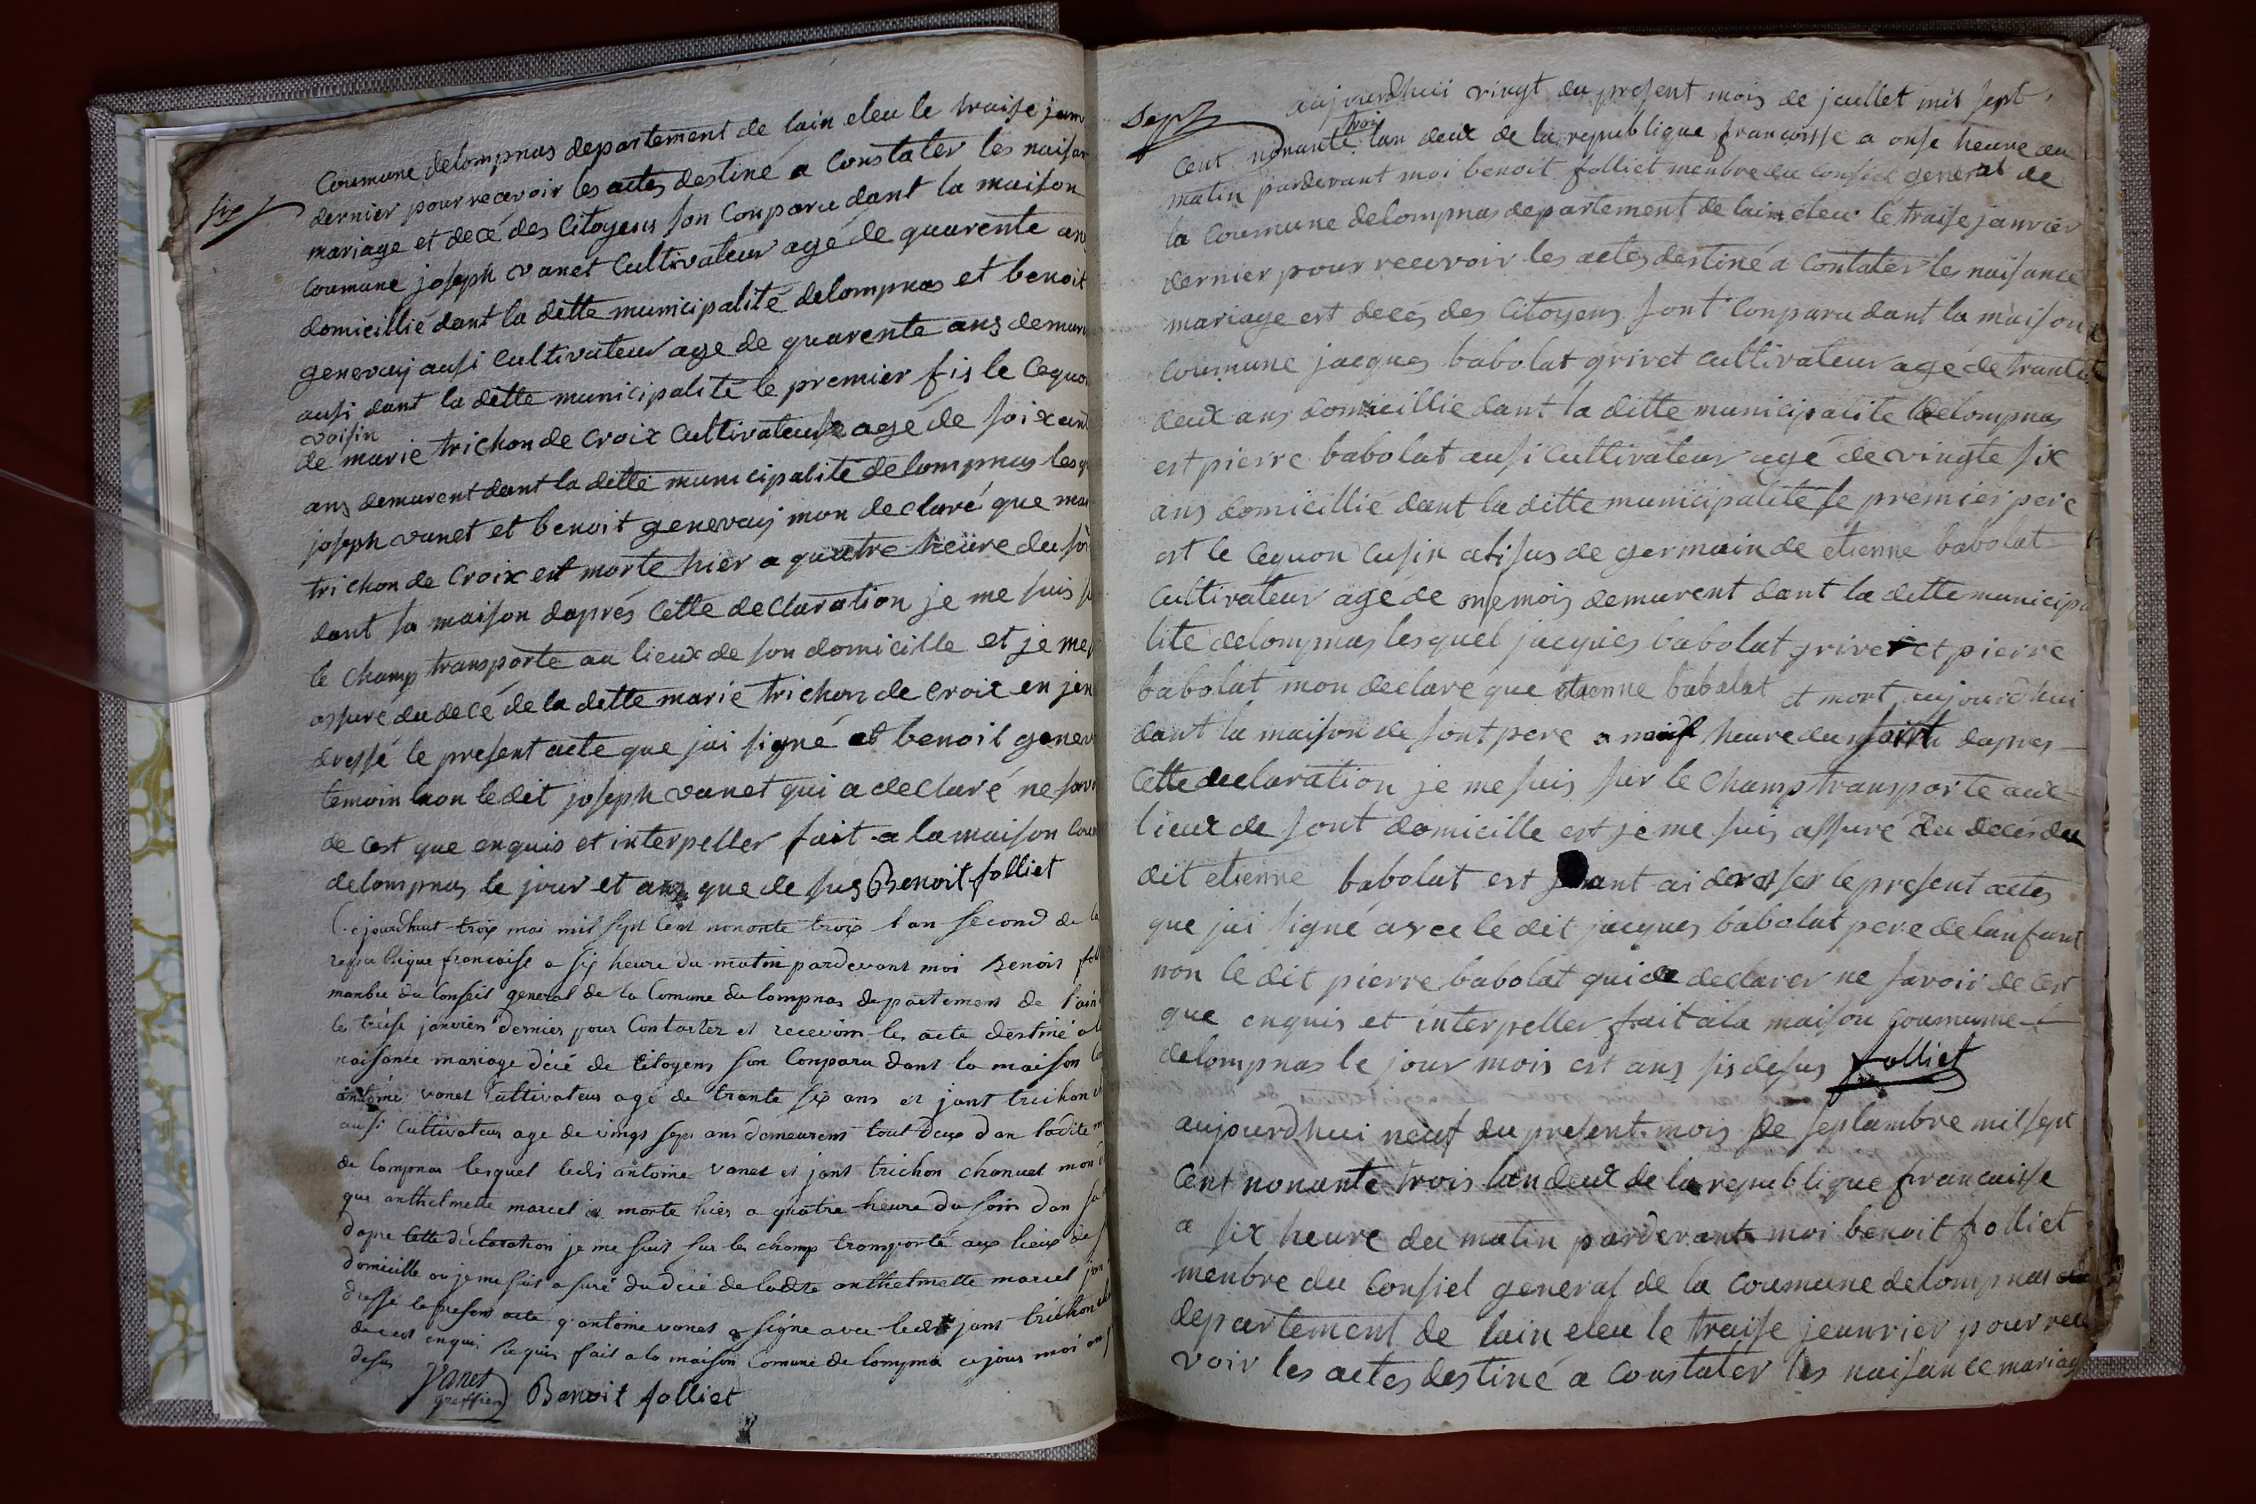 six
Coumune delompnas departement de lain eleu le traise janv
dernier pour recevoir les actes destiné a Constater les naisan
mariage et decé des Citoyens son Conparu dant la maison
coumune joseph vanet Cultivateur agé de quarente ans
domicillié dant la ditte municipalité delompnas et benoit
genevaij ausi cultivateur age de quarente ans demure
ausi dant la ditte municipalité le premier fis le Cequon
voisin
de marie trichon de Croix Cultivateuse agé de soixant
ans demurent dant la ditte municipalité delompnas lesq
joseph vanet et benoit genevaij mon declaré que mar
trichon de Croix est morte hier a quatre heure du so
dant sa maison daprés Cette declaration je me suis s
le Champ transporte au lieux de son domicille et je me s
assuré du decé de la ditte marie trichon de Croix en jen
dressé le present acte que jai signé et benoit genev
temoin non ledit joseph vanet qui a declaré ne savo
de cest que enquis et interpeller fait a la maison Coum
delompnas le jour et ans que de sus Benoit folliet
Ce jourdhuit troix mai mil sept Cent nonente troix l'an second de la
republique francoise a six heure du matin pardevant moi Benoit foll
manbre du Conseit general de la Comune de lompnas departement de l'ain
le treise janvier dernier pour Contacter et recevoir les acte destiné a
naisance mariage décé de Citoyens son Conparu dans la maison Co
antoine vanet Cultivateur agé de trante six ans et jant trichon ch
ausi Cultivateur age de vingt sept ans demeurent tout deux dan ladite m
de lompnas lesquel ledit antoine vanet et jant trichon chanuet mon d
que anthelmette marcel a morte hier a quatre heure du soir dan sa
dapre Cette déclaration je me suis sur le champ tromporté aux lieux de s
domicille ou je me suis asuré du décé de ladite anthelmette marcel jai
dressé le present acte q. antoine vanet a signe avec ledit jant trichon cha
de cest enqui requis fait a la maison Comune de lompna ce jour moi an
desus
Vanet
greffier Benoit folliet
Sept
aujourdhuii vingt du present mois de juillet mil sept
trois
Cent nonante lan deux de la republique francoisse a onse heure du
matin pardevant moi benoit folliet menbre du Consiel general de
la Coumune delompnas departement de lain eleu le traise janvier
dernier pour recevoir les actes destiné a Contater les naisance
mariage est decés des Citoyens sont Conparu dant la maison
Coumune jacques babolat grivet Cultivateur agé de trante
deux ans domicillie dant la ditte municipalite delompnas
est pierre babolat ausi Cultivateur agé de vingte six
ans domicillié dant la ditte municipalité le premier pere
est le Cequon Cusin atisus de germain de etienne babolat
Cultivateur agé de onse mois demurent dant la ditte municipa
lité delompnas lesquel jacques babolat grivet et pierre
babolat mon declaré que etienne babolat et mort aujourdhui
dant la maison de sont pere a neuf heure du daprés
Cette declaration je me suis sur le Champ transporte aux
lieux de sont domicille est je me suis assuré du decés du
dit etienne babolat est jant ai deresser le present actes
que jai signé avec le dit jacques babolat pere de lanfant
non le dit pierre babolat qui a declarer ne savoir de Cest
que enquis et interpeller fait a la maison Coumune
delompnas le jour mois est ans sis desus folliet
aujourdhui neuf du present mois de septambre mil sept
Cent nonante trois lan deux de la republique francaisse
a six heure du matin pardevant moi benoit folliet
menbre du Consiel general de la Coumune delompnas
departement de lain eleu le traise jeanvier pour rece
voir les actes destiné a Constater les naisance mariage